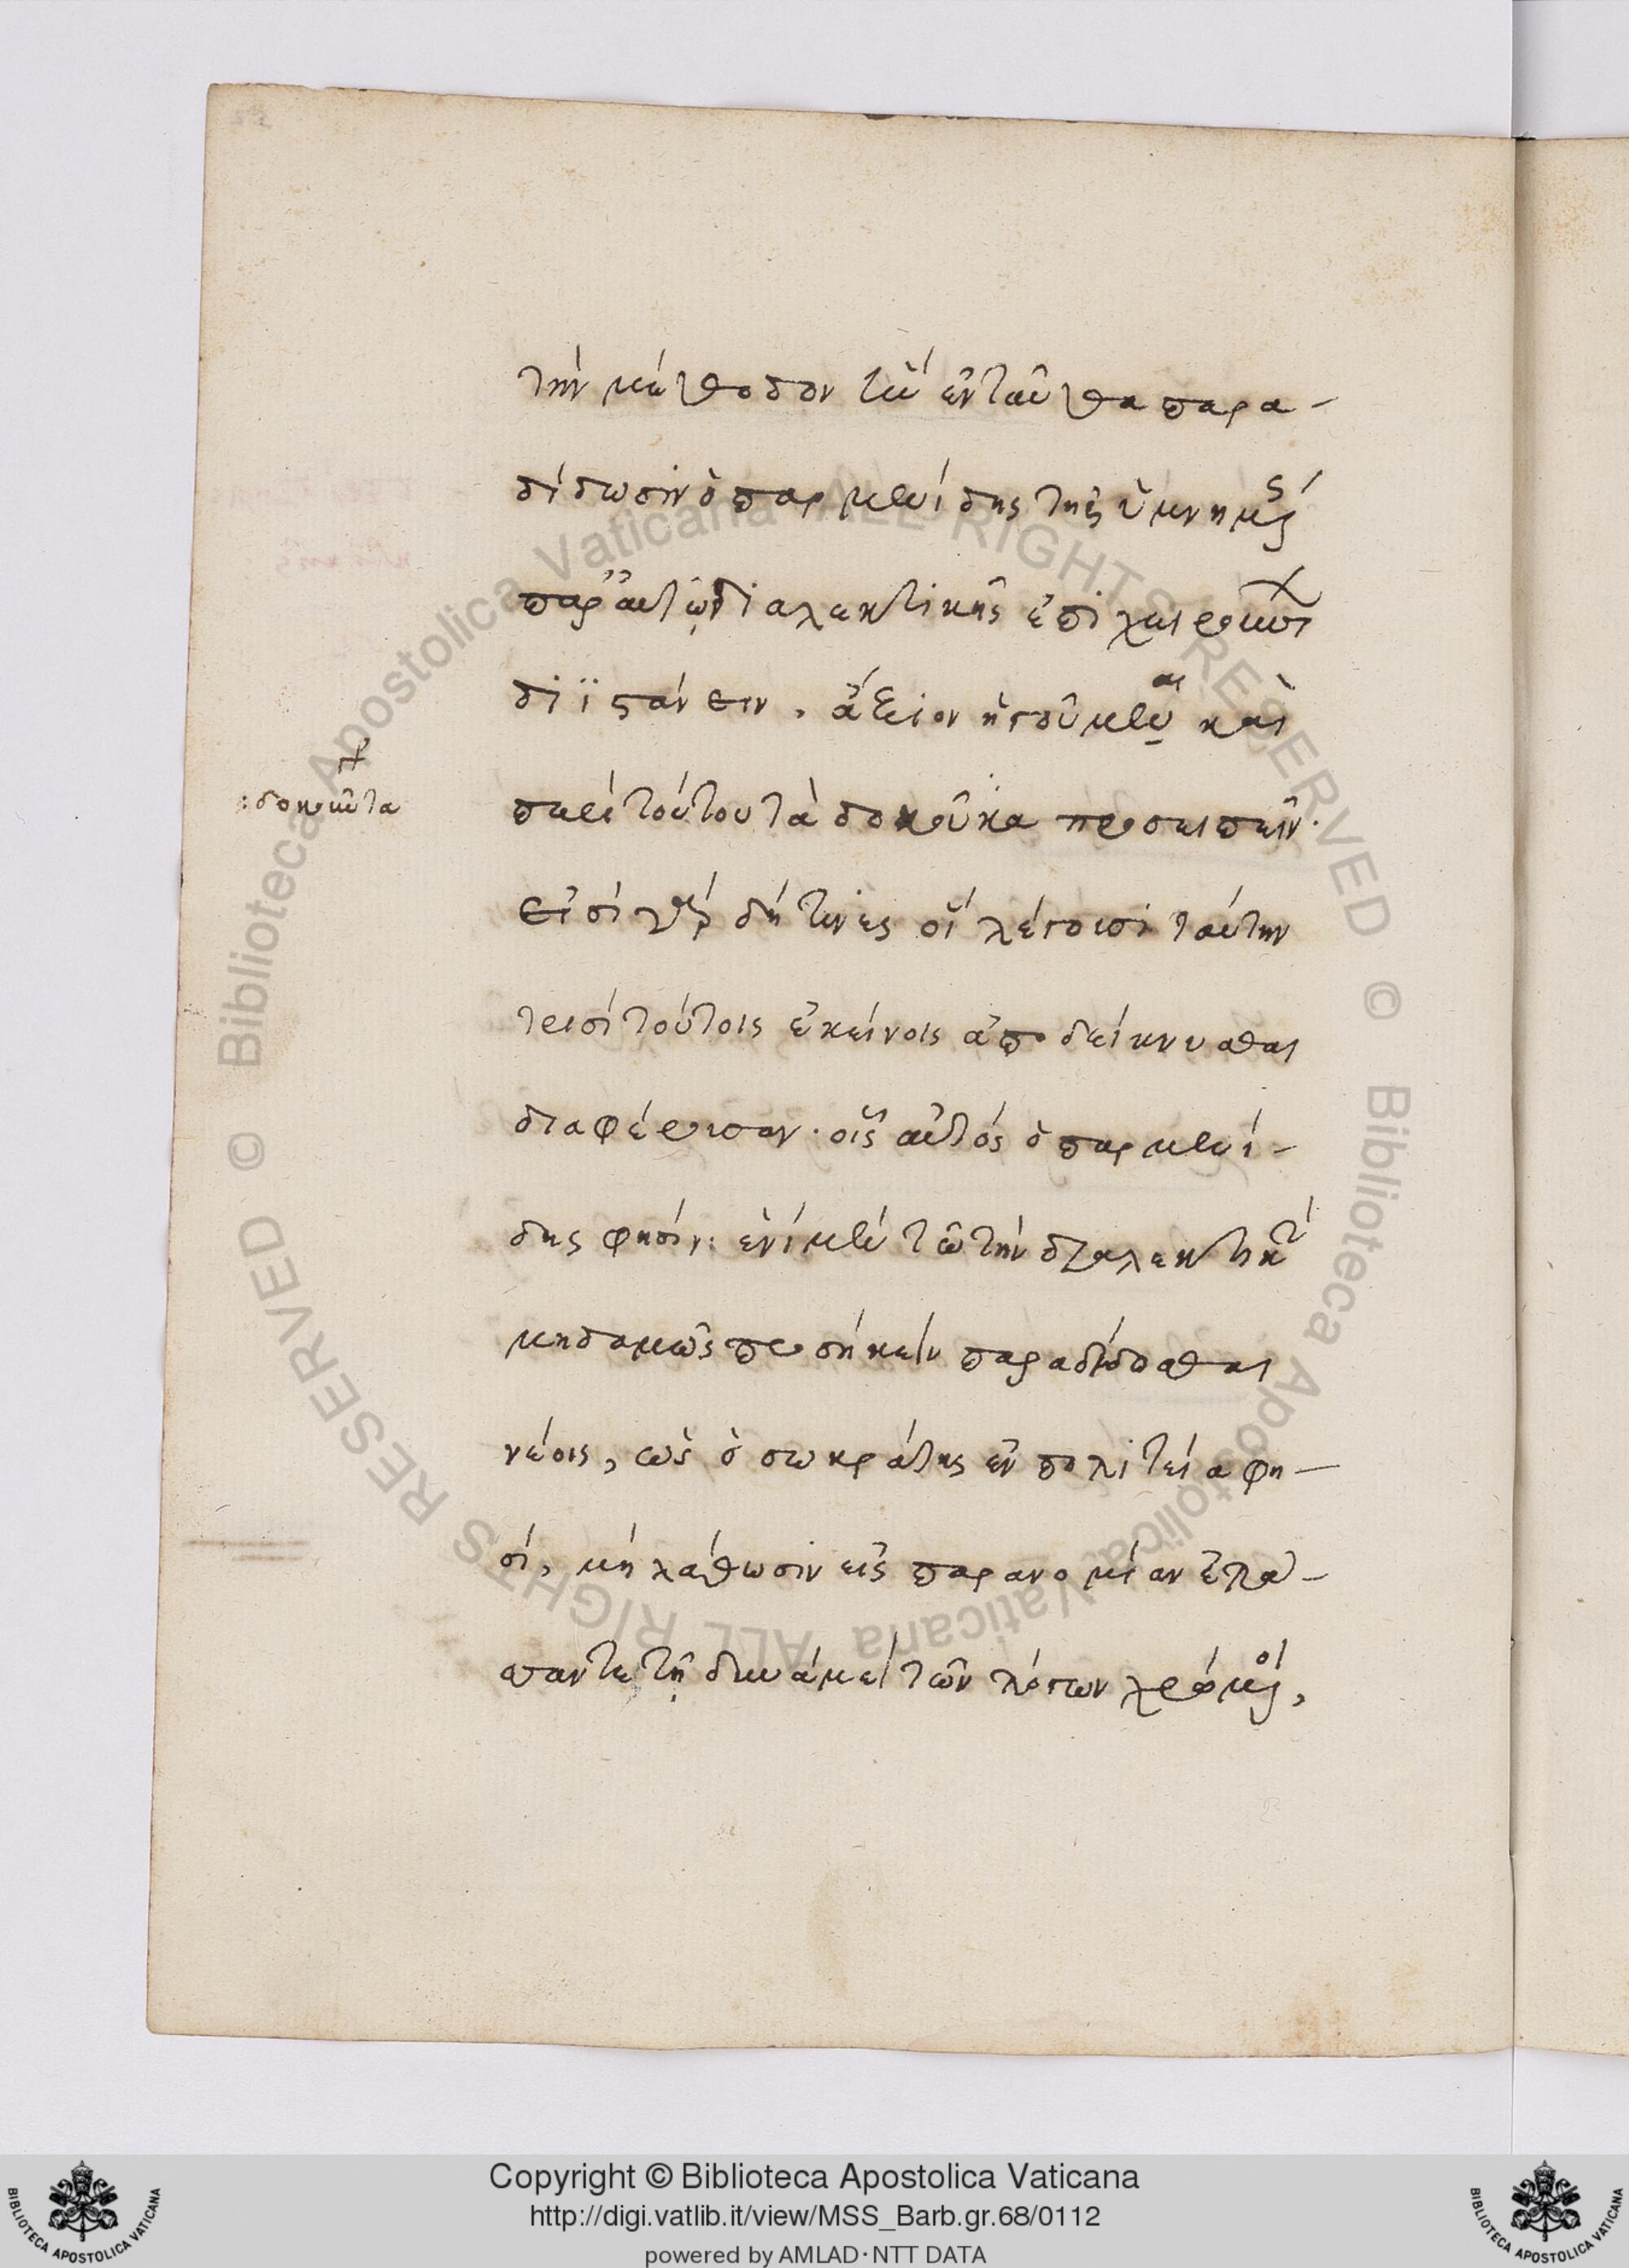 τὴν μέθοδον ἣν ἐνταῦθα παρα-
δίδωσιν ὁ παρμενίδης τῆς ὑμνημένης
παρ' αὐτῷ διαλεκτικῆς ἐπιχειροῦσι
διϊστάνειν, ἄξιον ἡγοῦμαι καὶ
περὶ τούτου τὰ δοκοῦντα προσειπεῖν·
: δοκοῦντα
εἰσὶ γὰρ δή τινες οἳ λέγουσι ταύτην
τρισὶ τούτοις ἐκείνοις ἀποδείκνυσθαι
διαφέρουσαν· οἷς αὐτὸς ὁ παρμενί-
δης φησίν: ἑνὶ μὲν τῷ τὴν διαλεκτικὴν
μηδαμῶς προσήκειν παραδίδοσθαι
νέοις, ὡς ὁ σωκράτης ἐν πολιτείᾳ φη-
σί, μὴ λάθωσιν εἰς παρανομίαν
τῇ δυνάμει τῶν λόγων χρώμενοι,
Copyright © Biblioteca Apostolica Vaticana
http://digi.vatlib.it/view/MSS_Barb.gr.68/0112
powered by AMLAD·NTT DATA
BIBLIOTECA APOSTOLICA VATICANA
BIBLIOTECA APOSTOLICA VATICANA
© Biblioteca Apostolica Vaticana ALL RIGHTS RESERVED
© Biblioteca Apostolica Vaticana ALL RIGHTS RESERVED